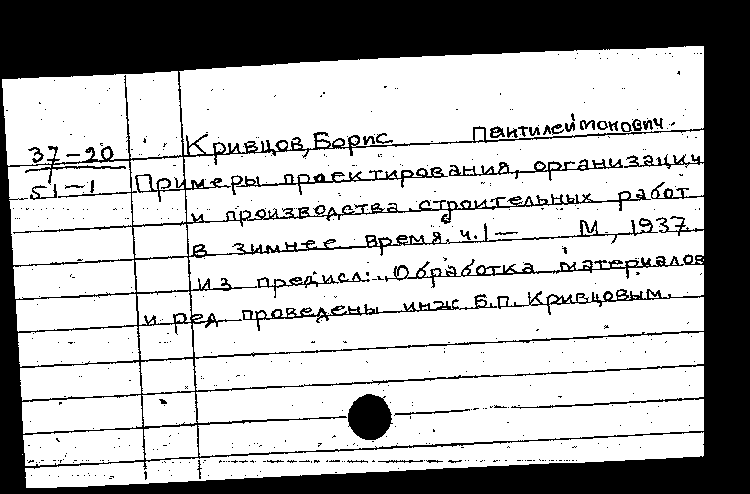 37-20
51-1
Кривцов, Борис Пантилеймонович.
Примеры проектирования, организации
и производства строительных работ
в зимнее время. ч. 1 — М., 1937.
из предисл: „Обработка материалов
и ред. проведены инж. Б.П. Кривцовым.